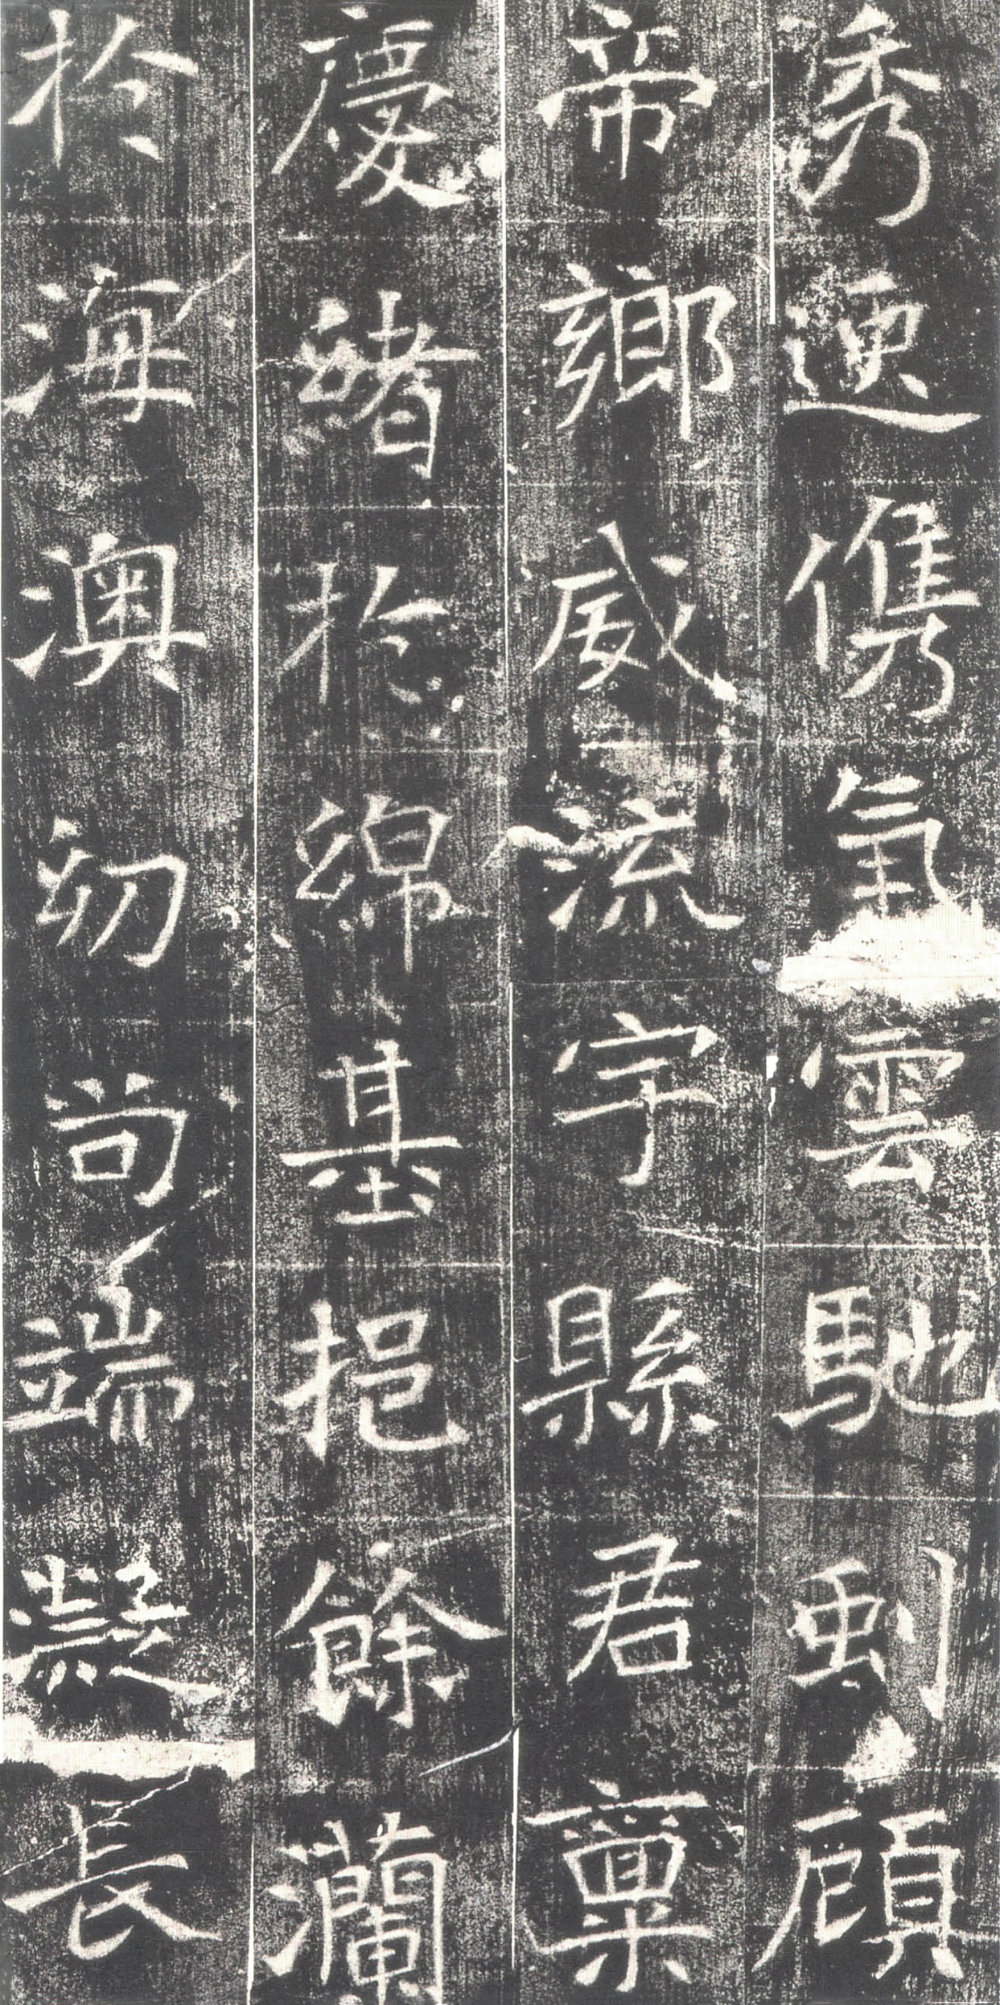 秀逈儁氣雲馳剬顧
帝鄉威流宇縣君稟
慶緒於綿基挹餘瀾
於海澳幼尚端凝長